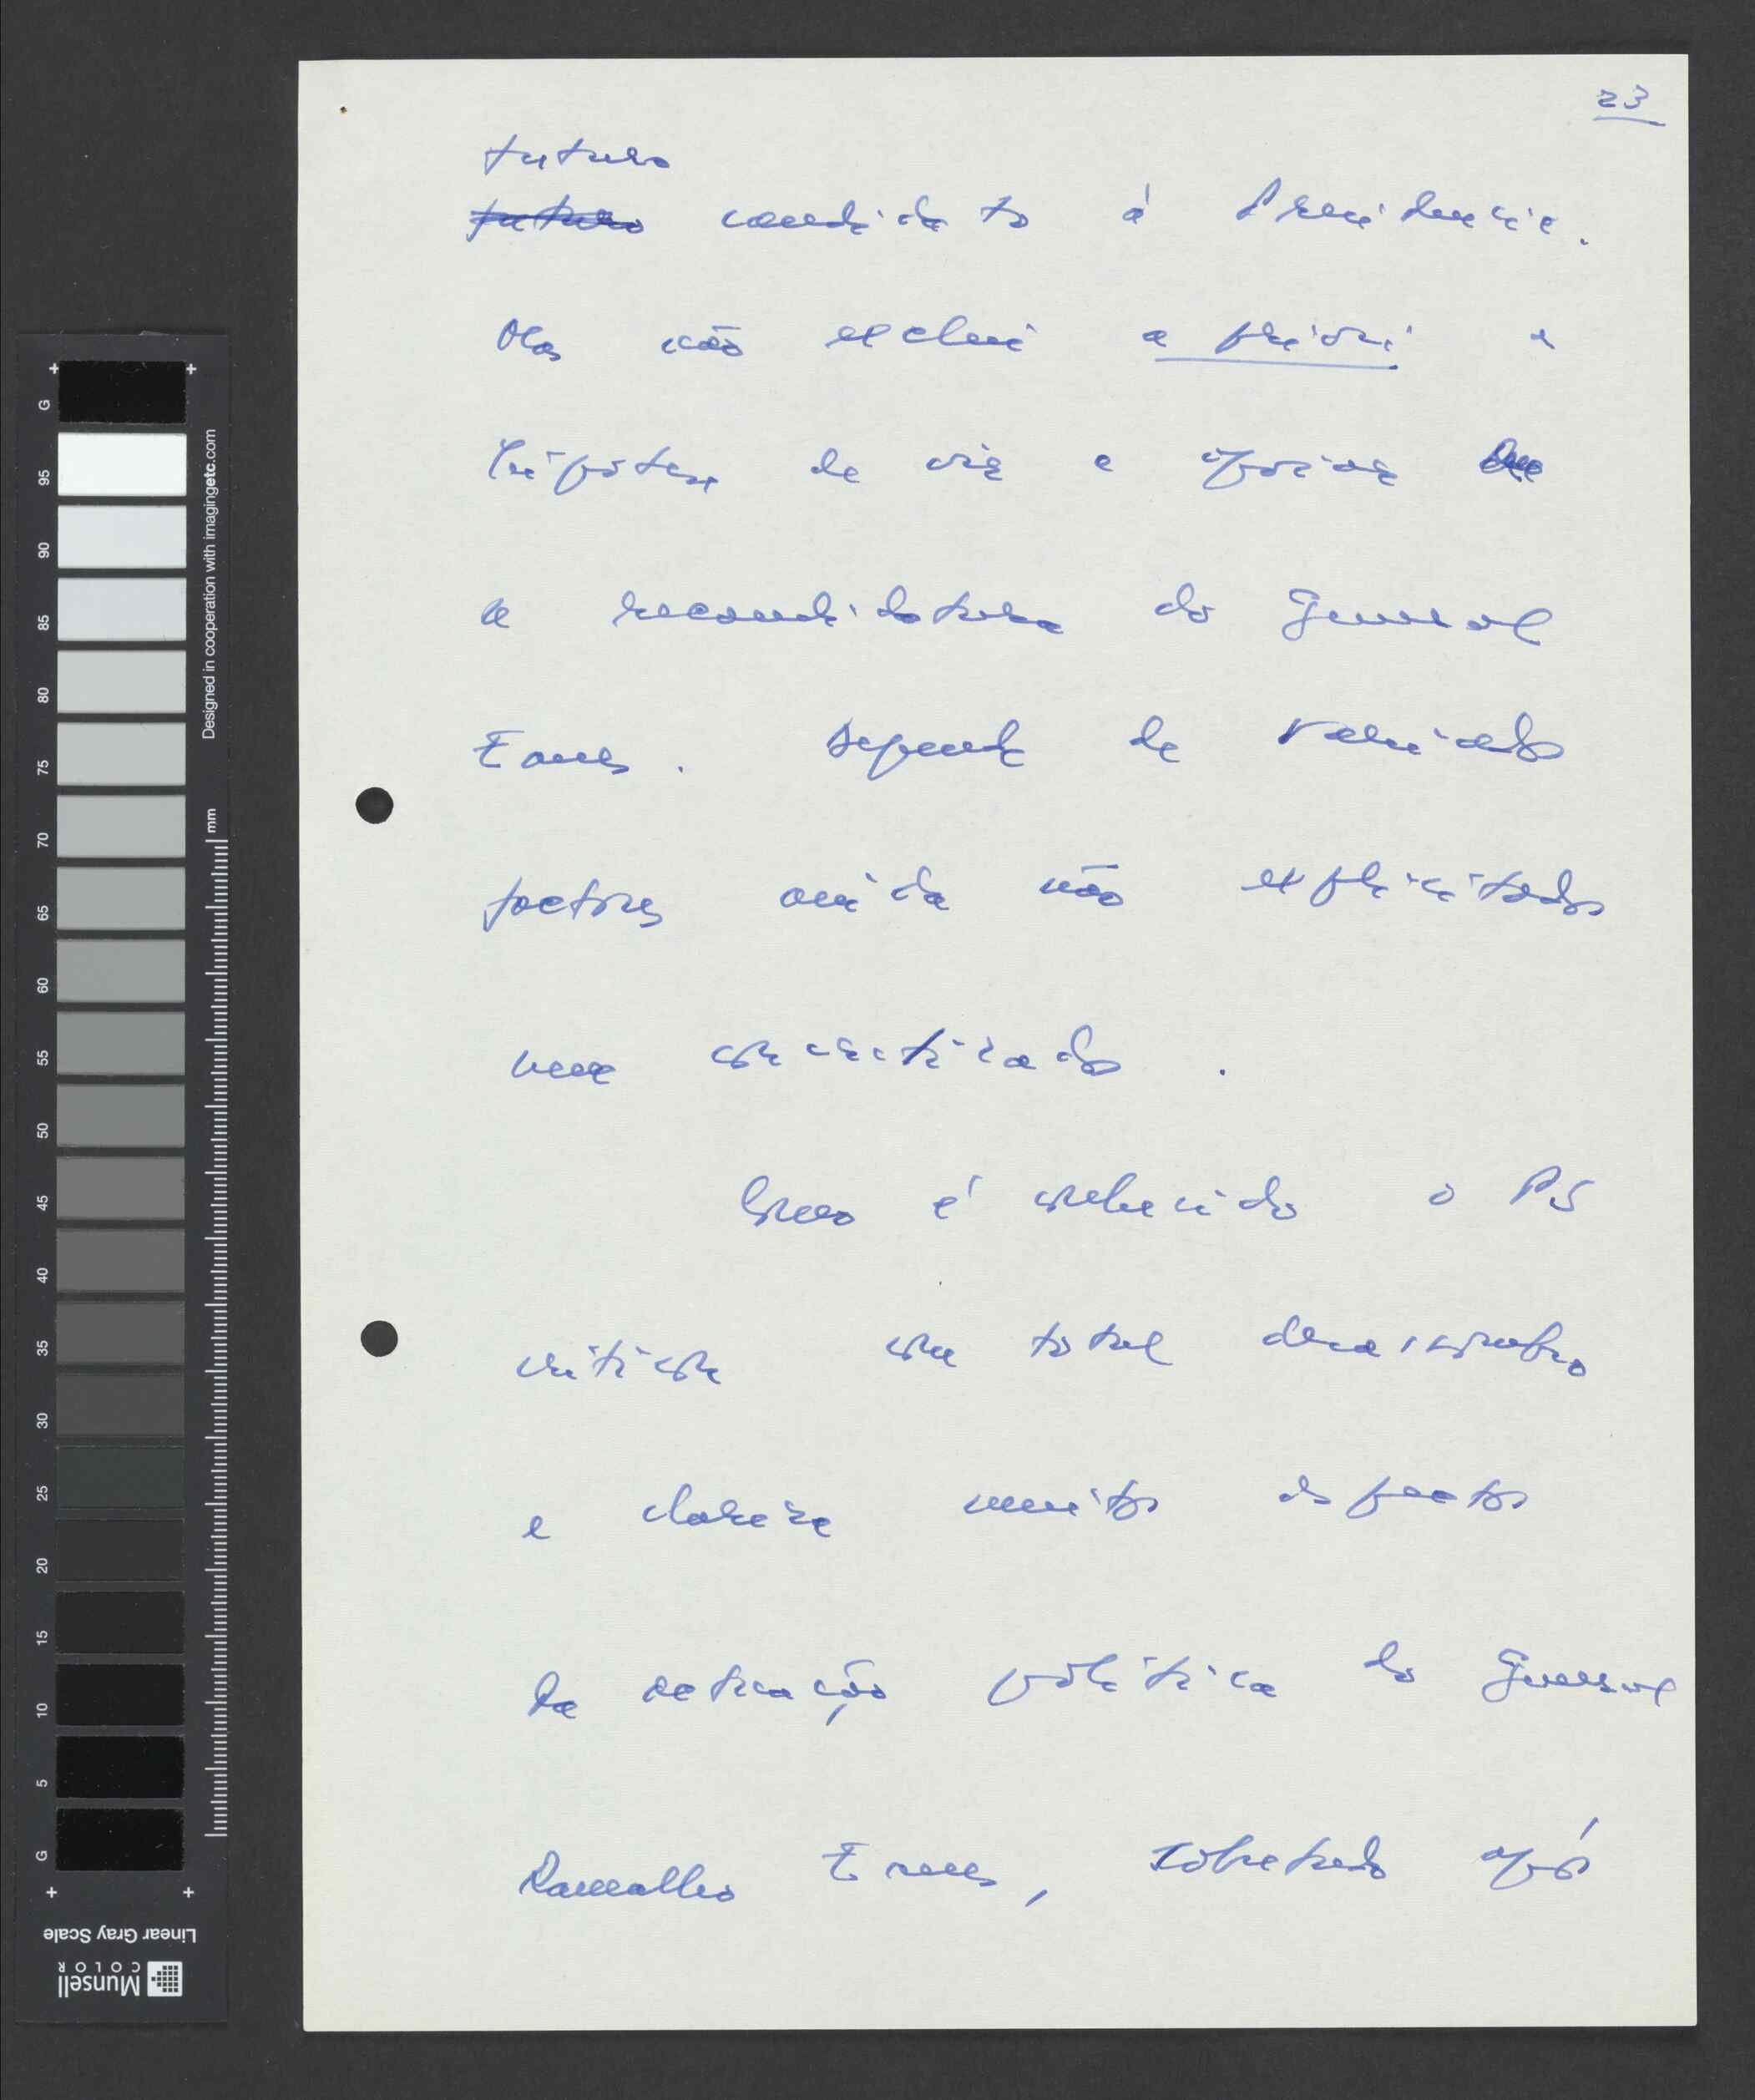 23
futuro
futuro candidato à Presidência.
Mas não exclui a priori a
hipótese de vir a apoiar
a recandidatura do General
Eanes. Depende de variados
factores ainda não explicitados
nem concretizados.
Como é conhecido o PS
critica com total desassombro
e clareza muitos dos factos
da actuação política do General
Ramalho Eanes, sobretudo após
Designed in cooperation with imagingetc.com
mm
G
95
90
85
80
75
70
65
60
55
50
45
40
35
30
25
20
15
10
5
G
Linear Gray Scale
Munsell
COLOR